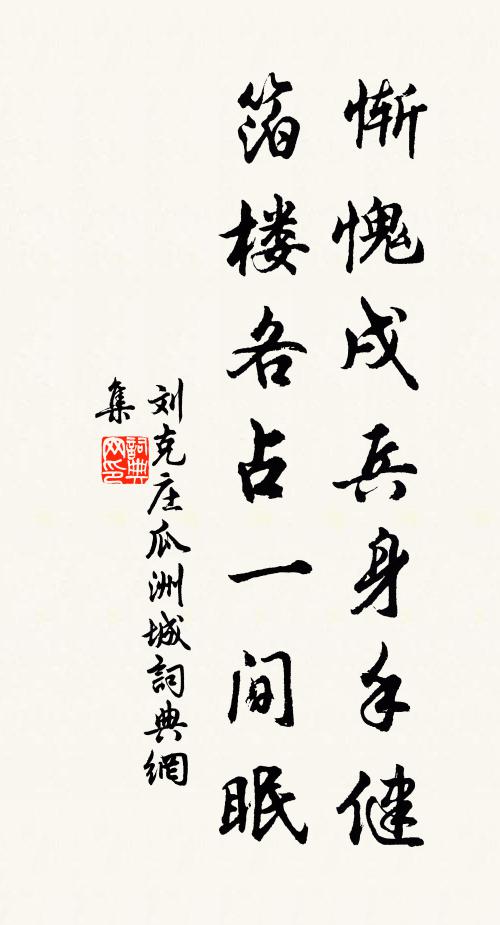 惭愧戍兵身手健
箔楼各占一间眠
刘克庄瓜洲城詞典網
集
詞典网印